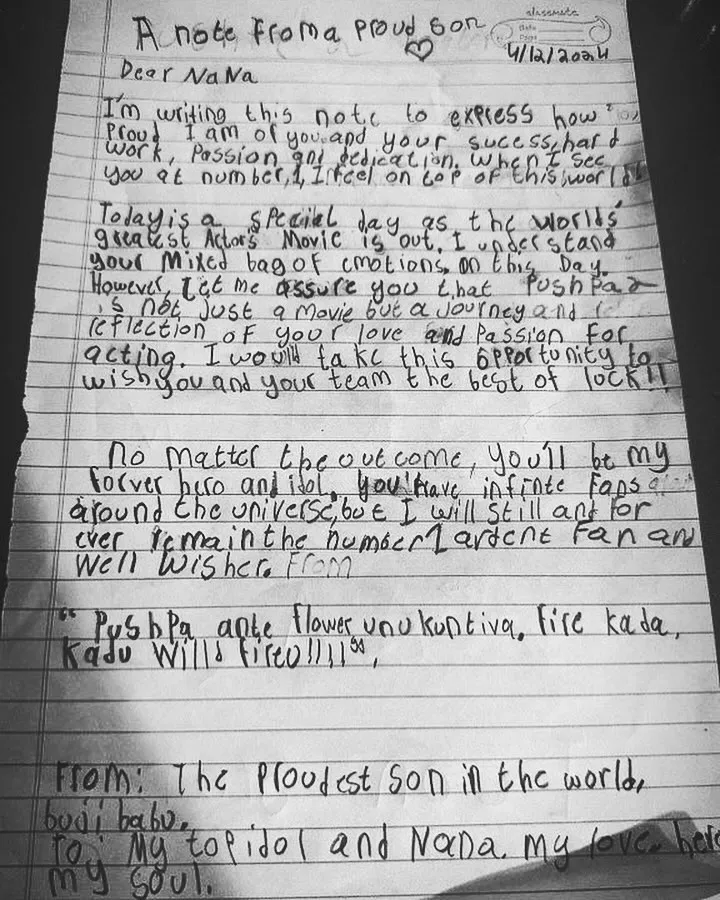 A note from a proud son
classmate
Date
Page
4/12/2024
Dear NaNa
I'm writing this note to express how
Proud I am of you and your sucess, hard
work, Passion and dedication. when I see
you at number, 1, I feel on top of this world
Today is a special day as the worlds'
greatest Actor's Movie is out. I understand
your Mixed bag of emotions on this Day.
However, Let me assure you that Pushpa 2
is not just a movie but a Journey and
reflection of your love and Passion for
acting. I would take this opportunity to
wish you and your team the best of lock!!
No matter the outcome, you'll be my
forver hero and idol. you'll have infinte Fans
around the universe, but I will still and for
ever remain the number 1 ardent Fan and
Well wisher. From
"Pushpa ante flower unukuntiva. Fire kada,
kadu Willd fireu!!!!",
From: The Proudest son in the world,
buji babu.
To: My top idol and NaNa. my love. hero
my soul.